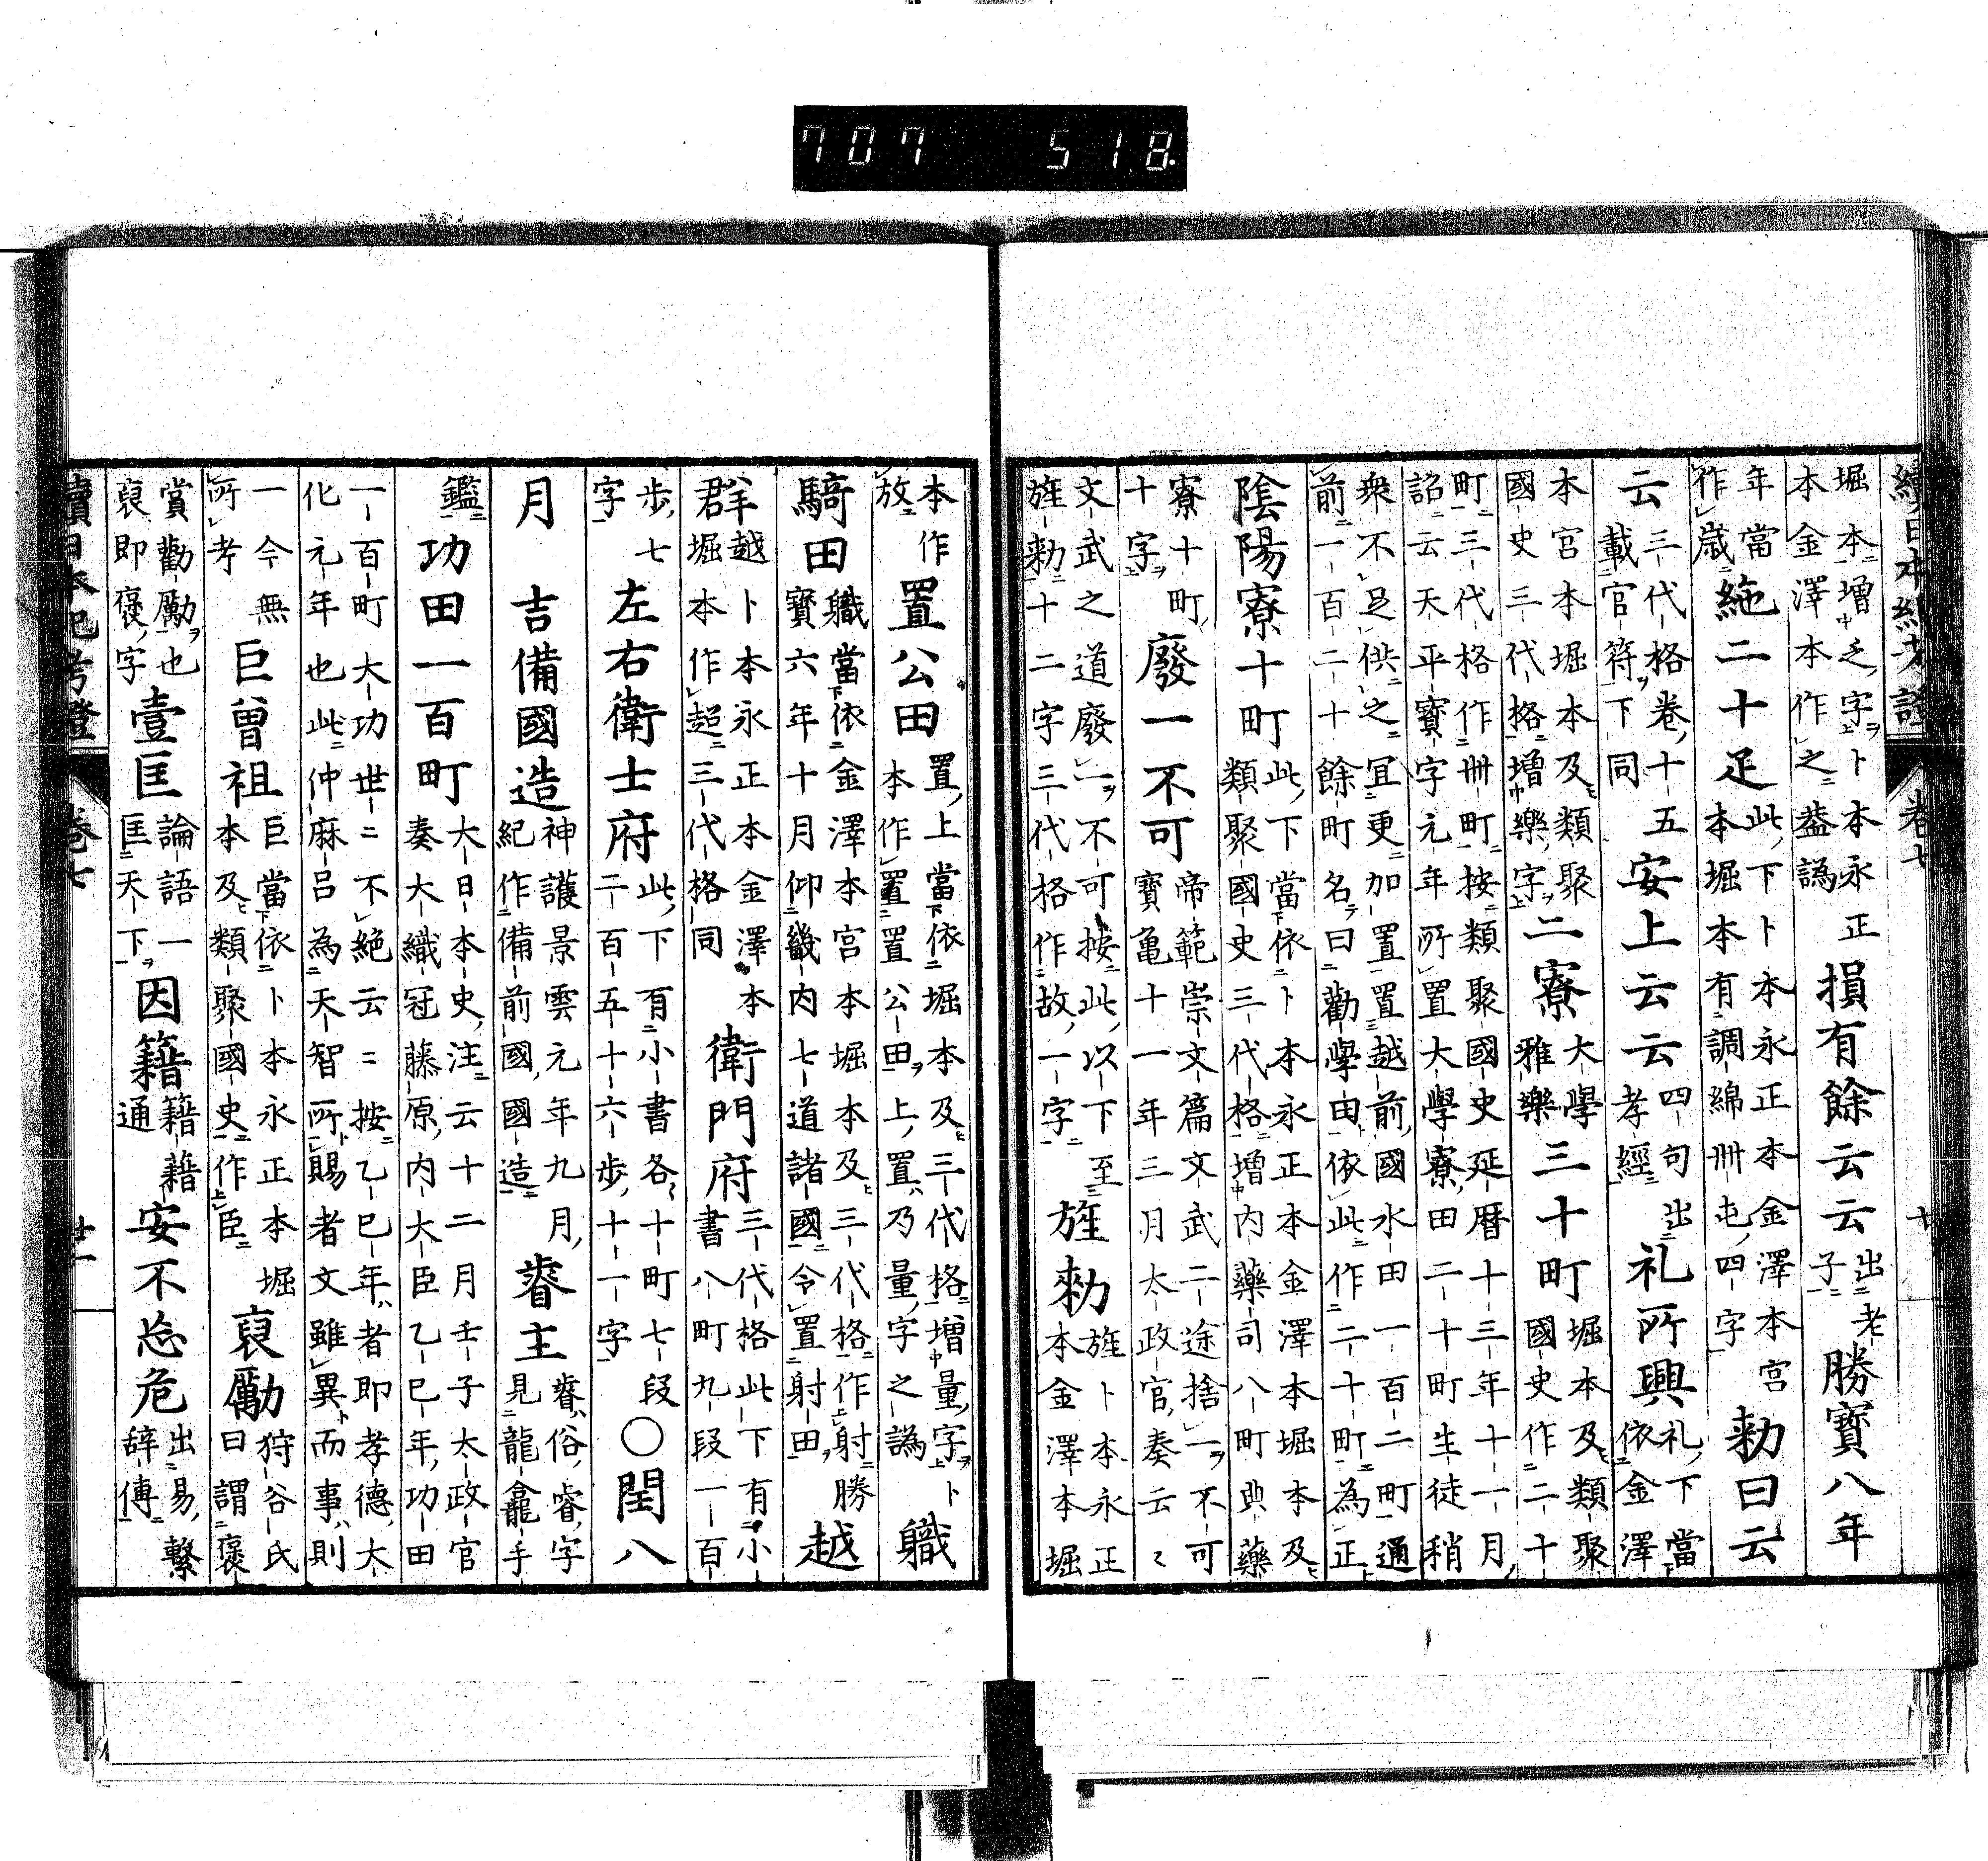 707 518.
續日本紀考證 卷七 十
堀本增之字卜本永正本金澤本作之盖譌 損有餘云云 出老子 勝寶八年
年當作歲 絁二十疋 此下卜本永正本金澤本宮本堀本有調綿卌屯四字 勅曰云
云 三代格卷十五載官符下同 安上云云 四句出孝經 礼所興 礼下當依金澤
本宮本堀本及類聚國史三代格增樂字 二寮 大學雅樂 三十町 堀本及類聚國史作二十
町三代格作卌町按類聚國史延曆十三年十一月詔云天平寶字元年所置大學寮田二十町生徒稍
衆不足供之冝更加置置越前國水田一百二町通前一百二十餘町名曰勸學田依此作二十町為正
陰陽寮十町 此下當依卜本永正本金澤本堀本及類聚國史三代格增內藥司八町典藥
寮十町十字 廢一不可 帝範崇文篇文武二途捨一不可寶亀十一年三月太政官奏云々
文武之道廢一不可按此以下至旌勅十二字三代格作故一字 旌勅 旌卜本永正本金澤本堀
本作放 置公田 置上當依堀本及三代格增量字卜本作置置公田上置乃量字之譌 職
騎田 職當依金澤本宮本堀本及三代格作射勝寶六年十月仰畿内七道諸國令置射田 越
羣 越卜本永正本金澤本堀本作超三代格同 衛門府 三代格此下有小書八町九段一百
步七字 左右衛士府 此下有小書各十町七段二百五十六步十一字 ○閏八
月 吉備國造 神護景雲元年九月紀作備前國國造 睿主 睿俗睿字見龍龕手
鑑 功田一百町 大日本史注云十二月壬子太政官奏大織冠藤原内大臣乙巳年功田
一百町大功世々不絕云々按乙巳年者即孝德大化元年也此仲麻呂為天智所賜者文雖異而事則
一今無所考 巨曾祖 巨當依卜本永正本堀本及類聚國史作臣 裒勵 狩谷氏曰謂褒
賞勸勵也裒即褒字 壹匡 論語一匡天下 因籍 籍藉通 安不忘危 出易繫辞傳
續日本紀考證 卷七 廿一